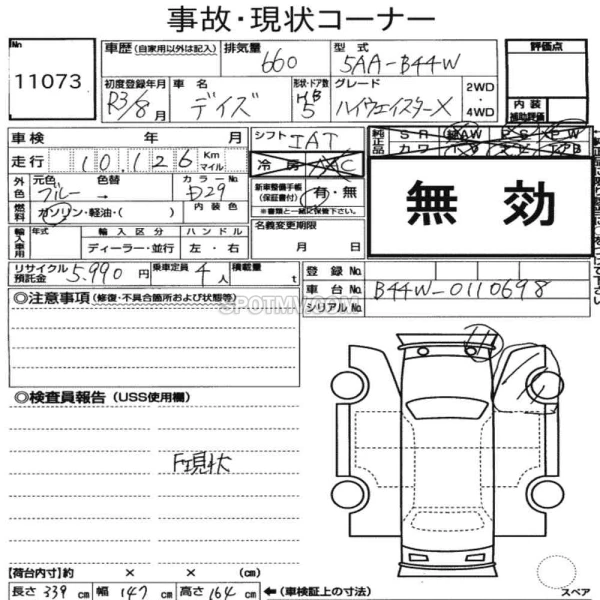 事故・現状コーナー
No 11073
車歴 (自家用以外は記入) 排気量 660 型式 5AA-B44W 評価点
初度登録年月 R3/8月 車名 デイズ 形状・ドア数 HB 5 グレード ハイウェイスターX 2WD・4WD 内装補助評価
車検 年 月 シフト IAT 純正品 SR AW PW
走行 10,126 Km マイル 冷房 AAC カワ
外色 元色 ブルー 色替 → カラーNo. D29 新車整備手帳(保証書付) 有・無
※書類と一緒に保管下さい。
燃料 ガソリン・軽油・( ) 内装色 名義変更期限
無効
輸入車用 年式 輸入区分 ハンドル
ディーラー・並行 左・右 月 日
リサイクル預託金 5,990円 乗車定員 4人 積載量 t 登録No.
車台No. B44W-0110698
シリアルNo.
◎注意事項 (修復・不具合箇所および状態等)
SPOTMV.COM
◎検査員報告 (USS使用欄)
F現状
【荷台内寸】約 × × (cm)
長さ 339cm 幅 147cm 高さ 164cm ←(車検証上の寸法)
スペア